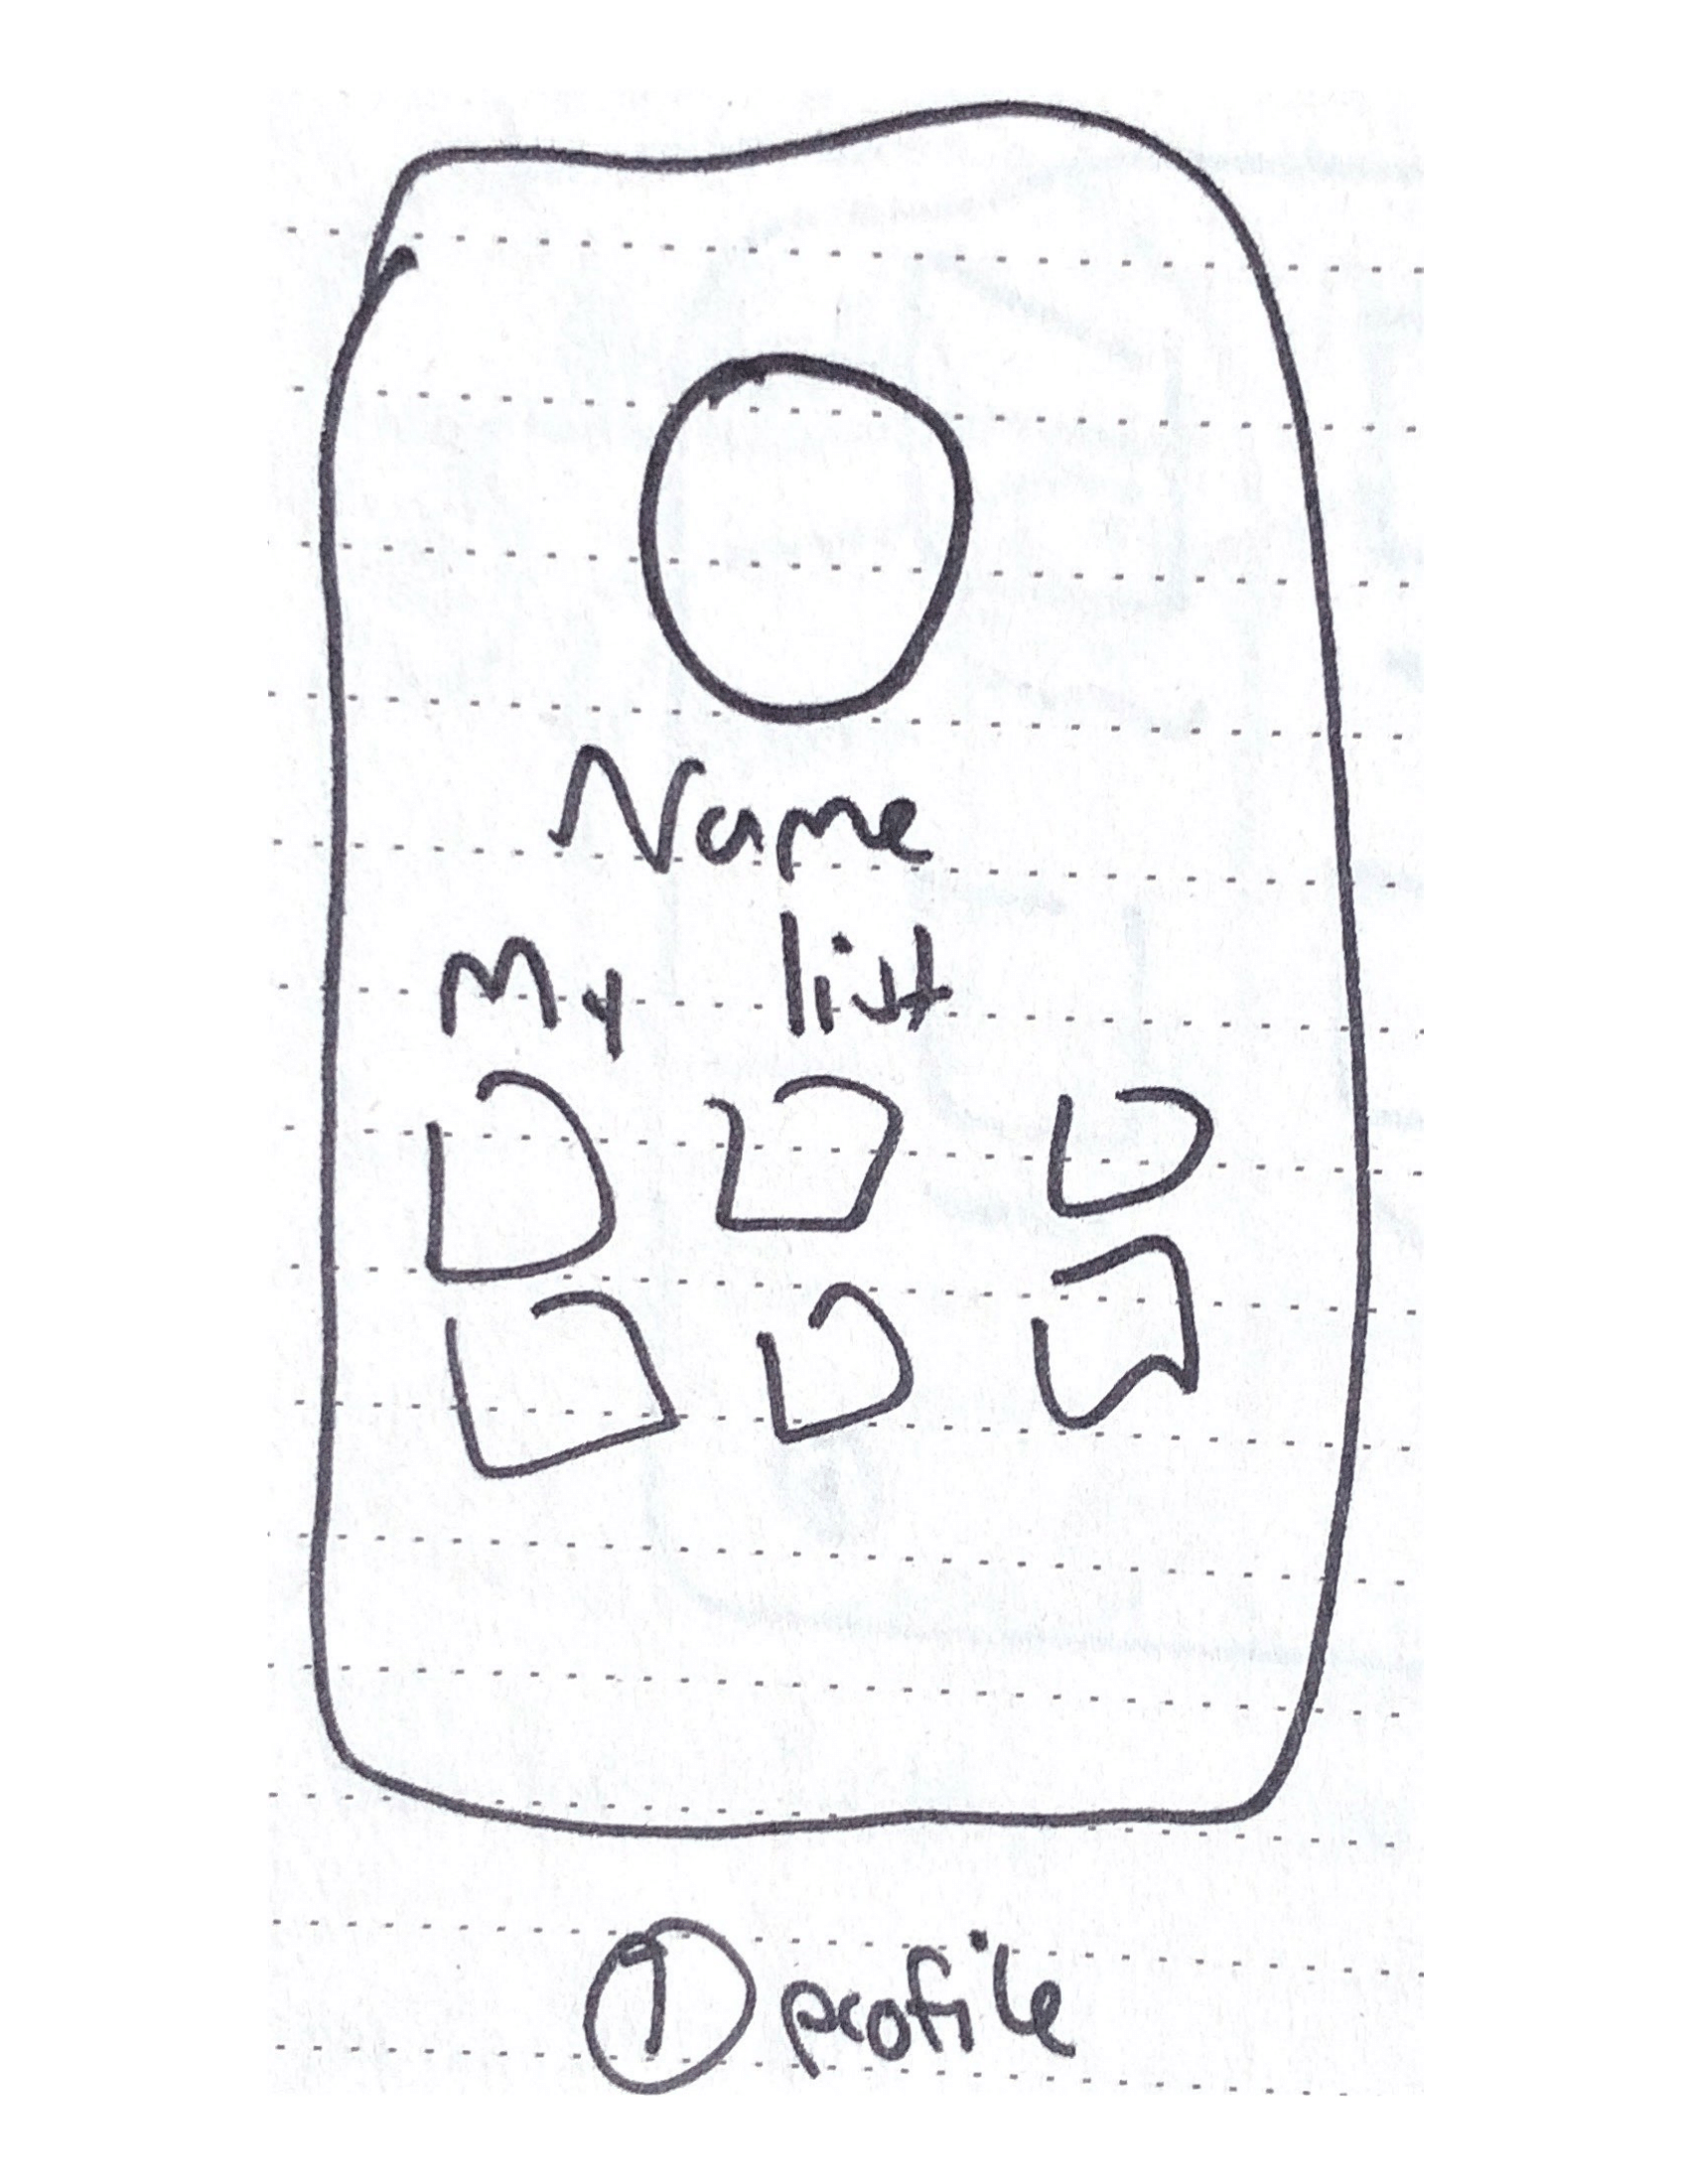 Name
My list
1 profile